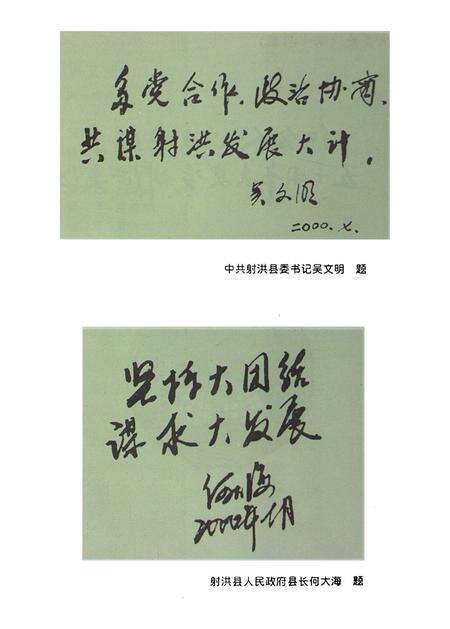 多党合作、政治协商、
共谋射洪发展大计。
吴文明
二000.七.
中共射洪县委书记吴文明 题
坚持大团结
谋求大发展
何大海
射洪县人民政府县长何大海 题